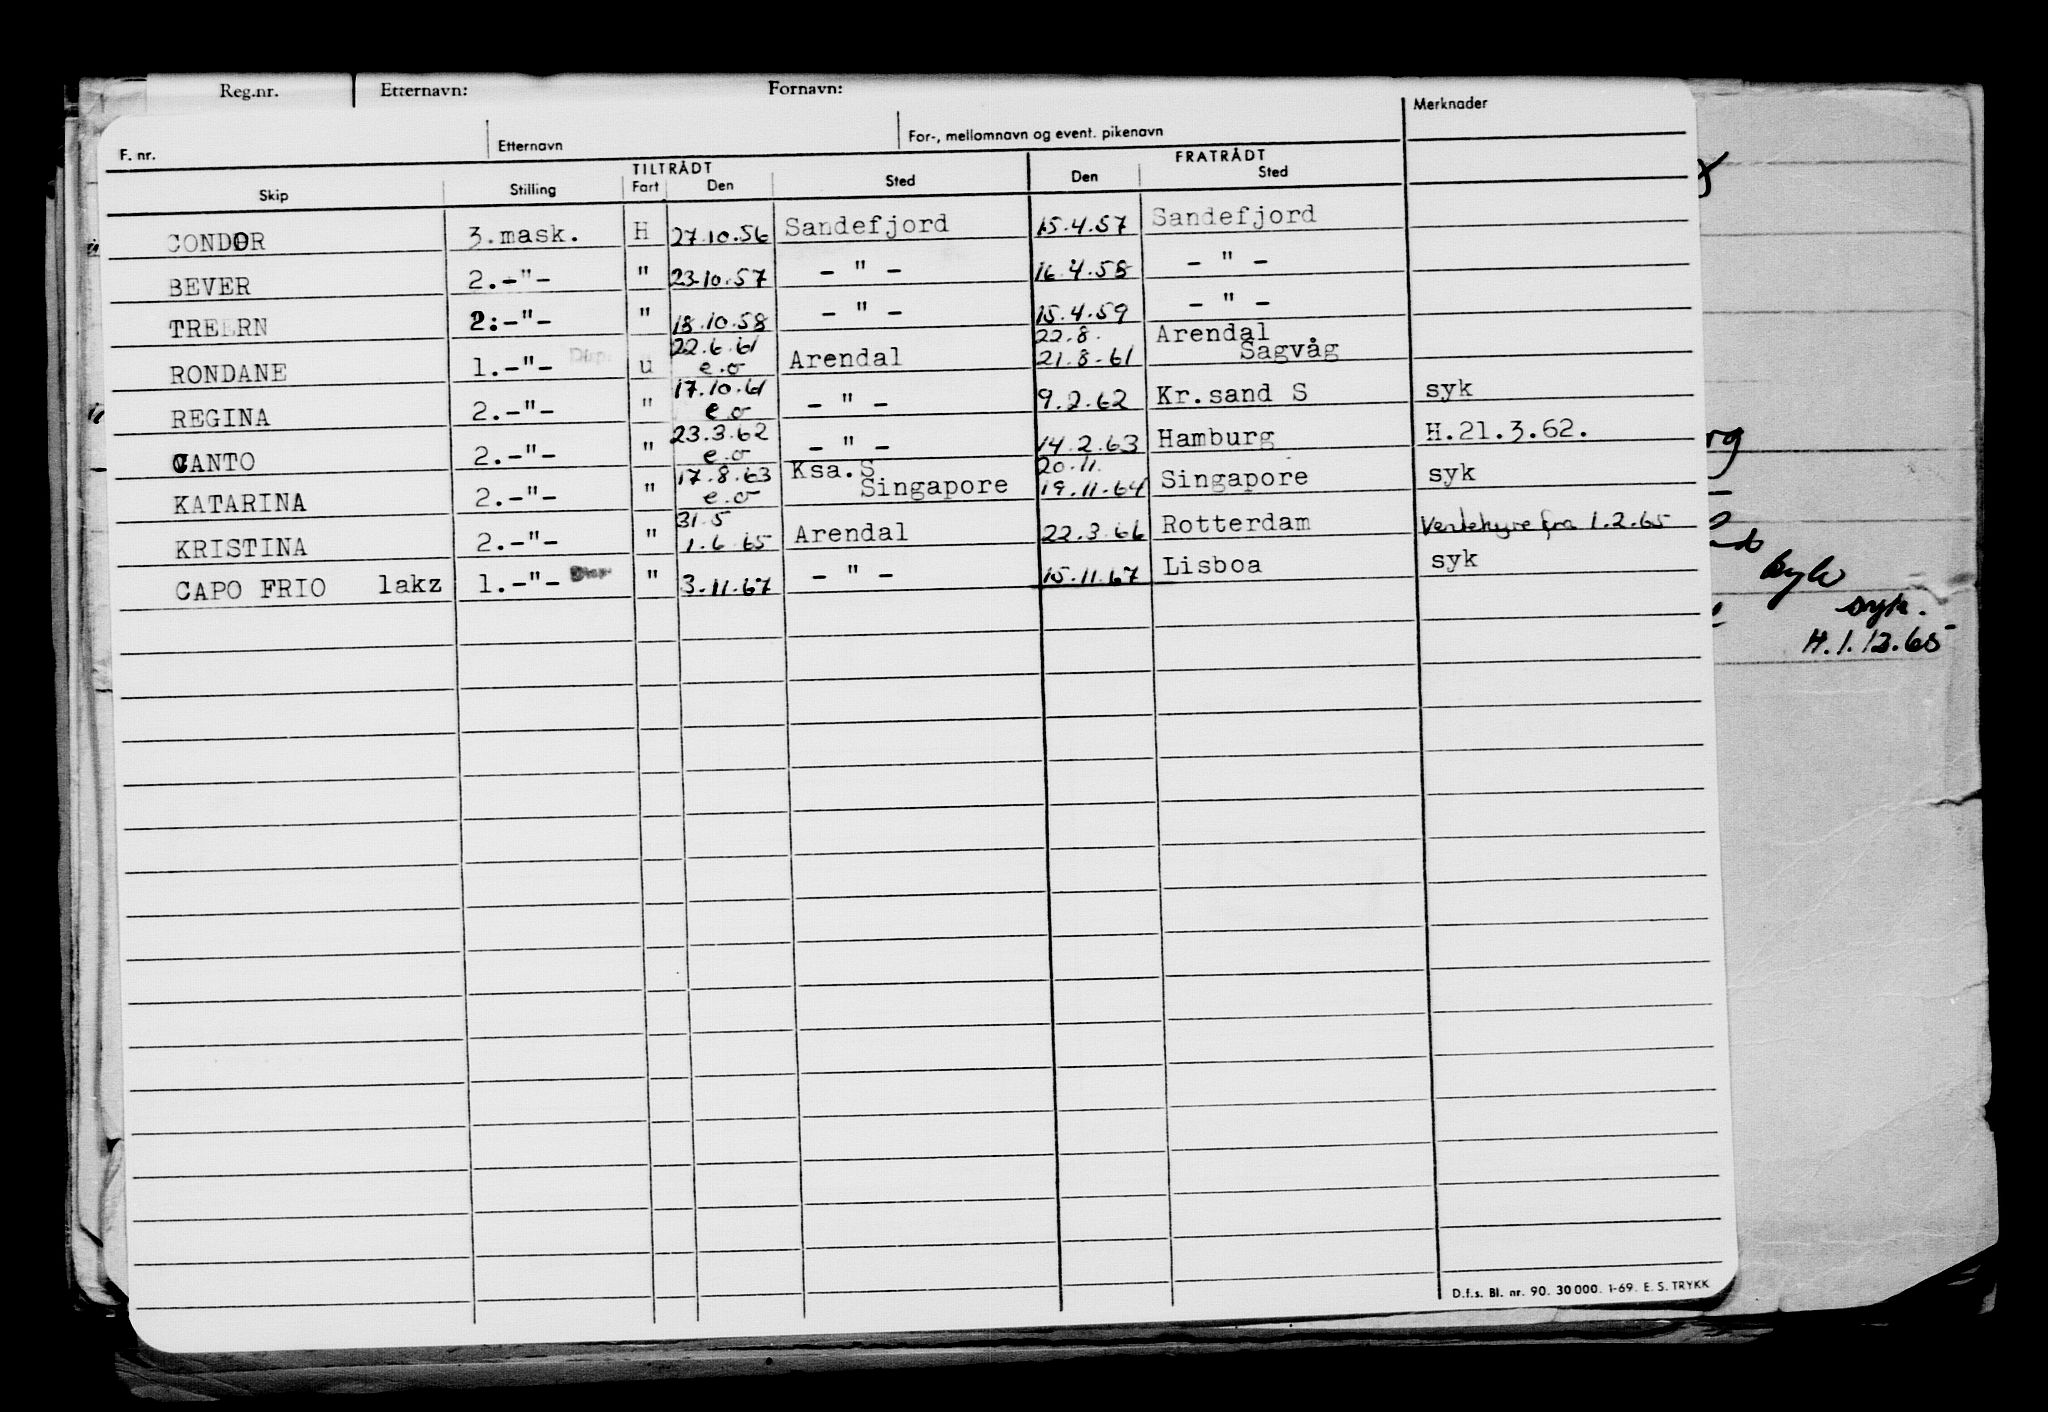 Reg.nr. Etternavn: Fornavn:
F. nr. Etternavn For-, mellomnavn og event. pikenavn Merknader
TILTRÅDT FRATRÅDT
Skip Stilling Fart Den Sted Den Sted
CONDOR 3.mask. H 27.10.56 Sandefjord 15.4.57 Sandefjord
BEVER 2.-"- " 23.10.57 - " - 16.4.58 - " -
TREERN 2:-"- " 18.10.58 - " - 15.4.59 - " -
22.6.61 22.8. Arendal
RONDANE 1.-"- Disp. u e.o Arendal 21.8.61 Sagvåg
17.10.61
REGINA 2.-"- " e.o - " - 9.2.62 Kr.sand S syk
23.3.62
CANTO 2.-"- " e.o - " - 14.2.63 Hamburg H.21.3.62.
17.8.63 Ksa.S 20.11.
KATARINA 2.-"- " e.o Singapore 19.11.64 Singapore syk
31.5
KRISTINA 2.-"- " 1.6.65 Arendal 22.3.66 Rotterdam Ventehyre fra 1.2.65
CAPO FRIO lakz 1.-"- Disp " 3.11.67 - " - 15.11.67 Lisboa syk
syk.
H.1.12.65
D.f.s. Bl. nr. 90. 30 000. 1-69. E. S. TRYKK